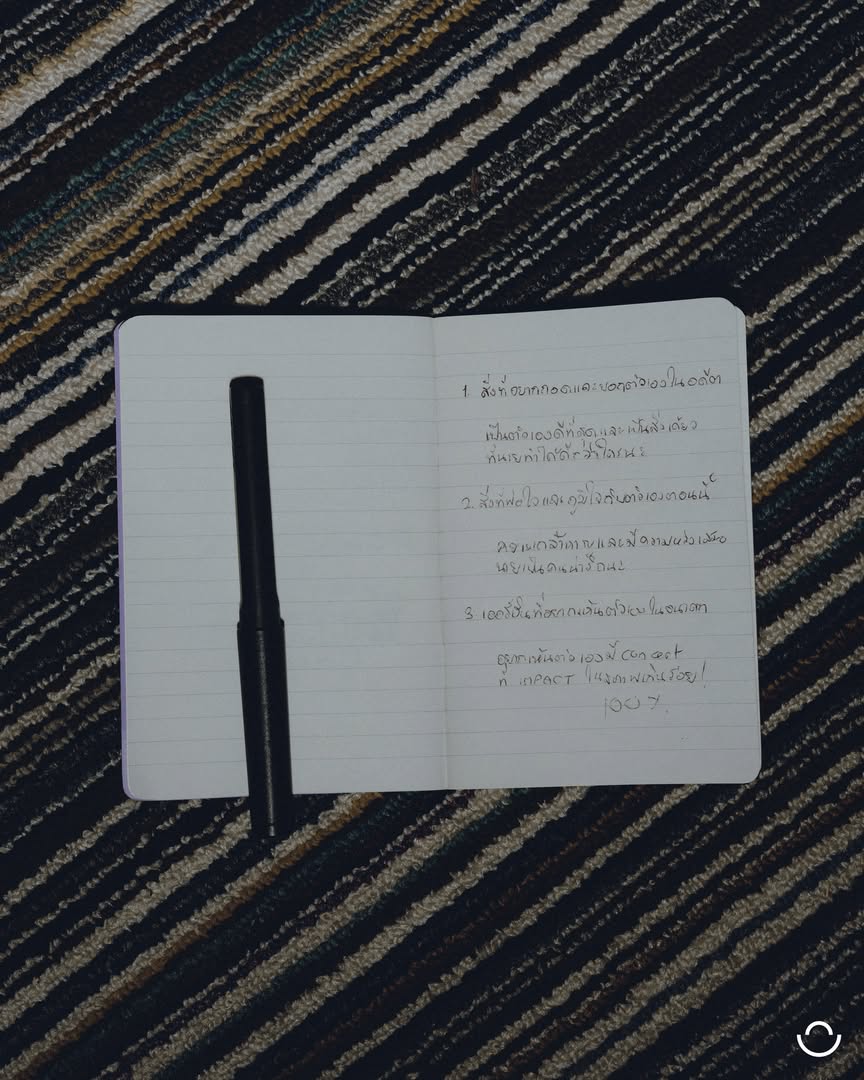 1. สิ่งที่อยากกอดและบอกตัวเองในอดีต
เป็นตัวเองดีที่สุดและเป็นสิ่งเดียว
ที่นายทำได้ดีกว่าใครนะ
2. สิ่งที่พอใจและภูมิใจกับตัวเองตอนนี้
และมีความ
นายเป็นคนน่ารักนะ
3. เวอร์ชั่นที่อยากเห็นตัวเองในอนาคต
อยากเห็นตัวเองมี
ที่ IMPACT เกินร้อย!
100%